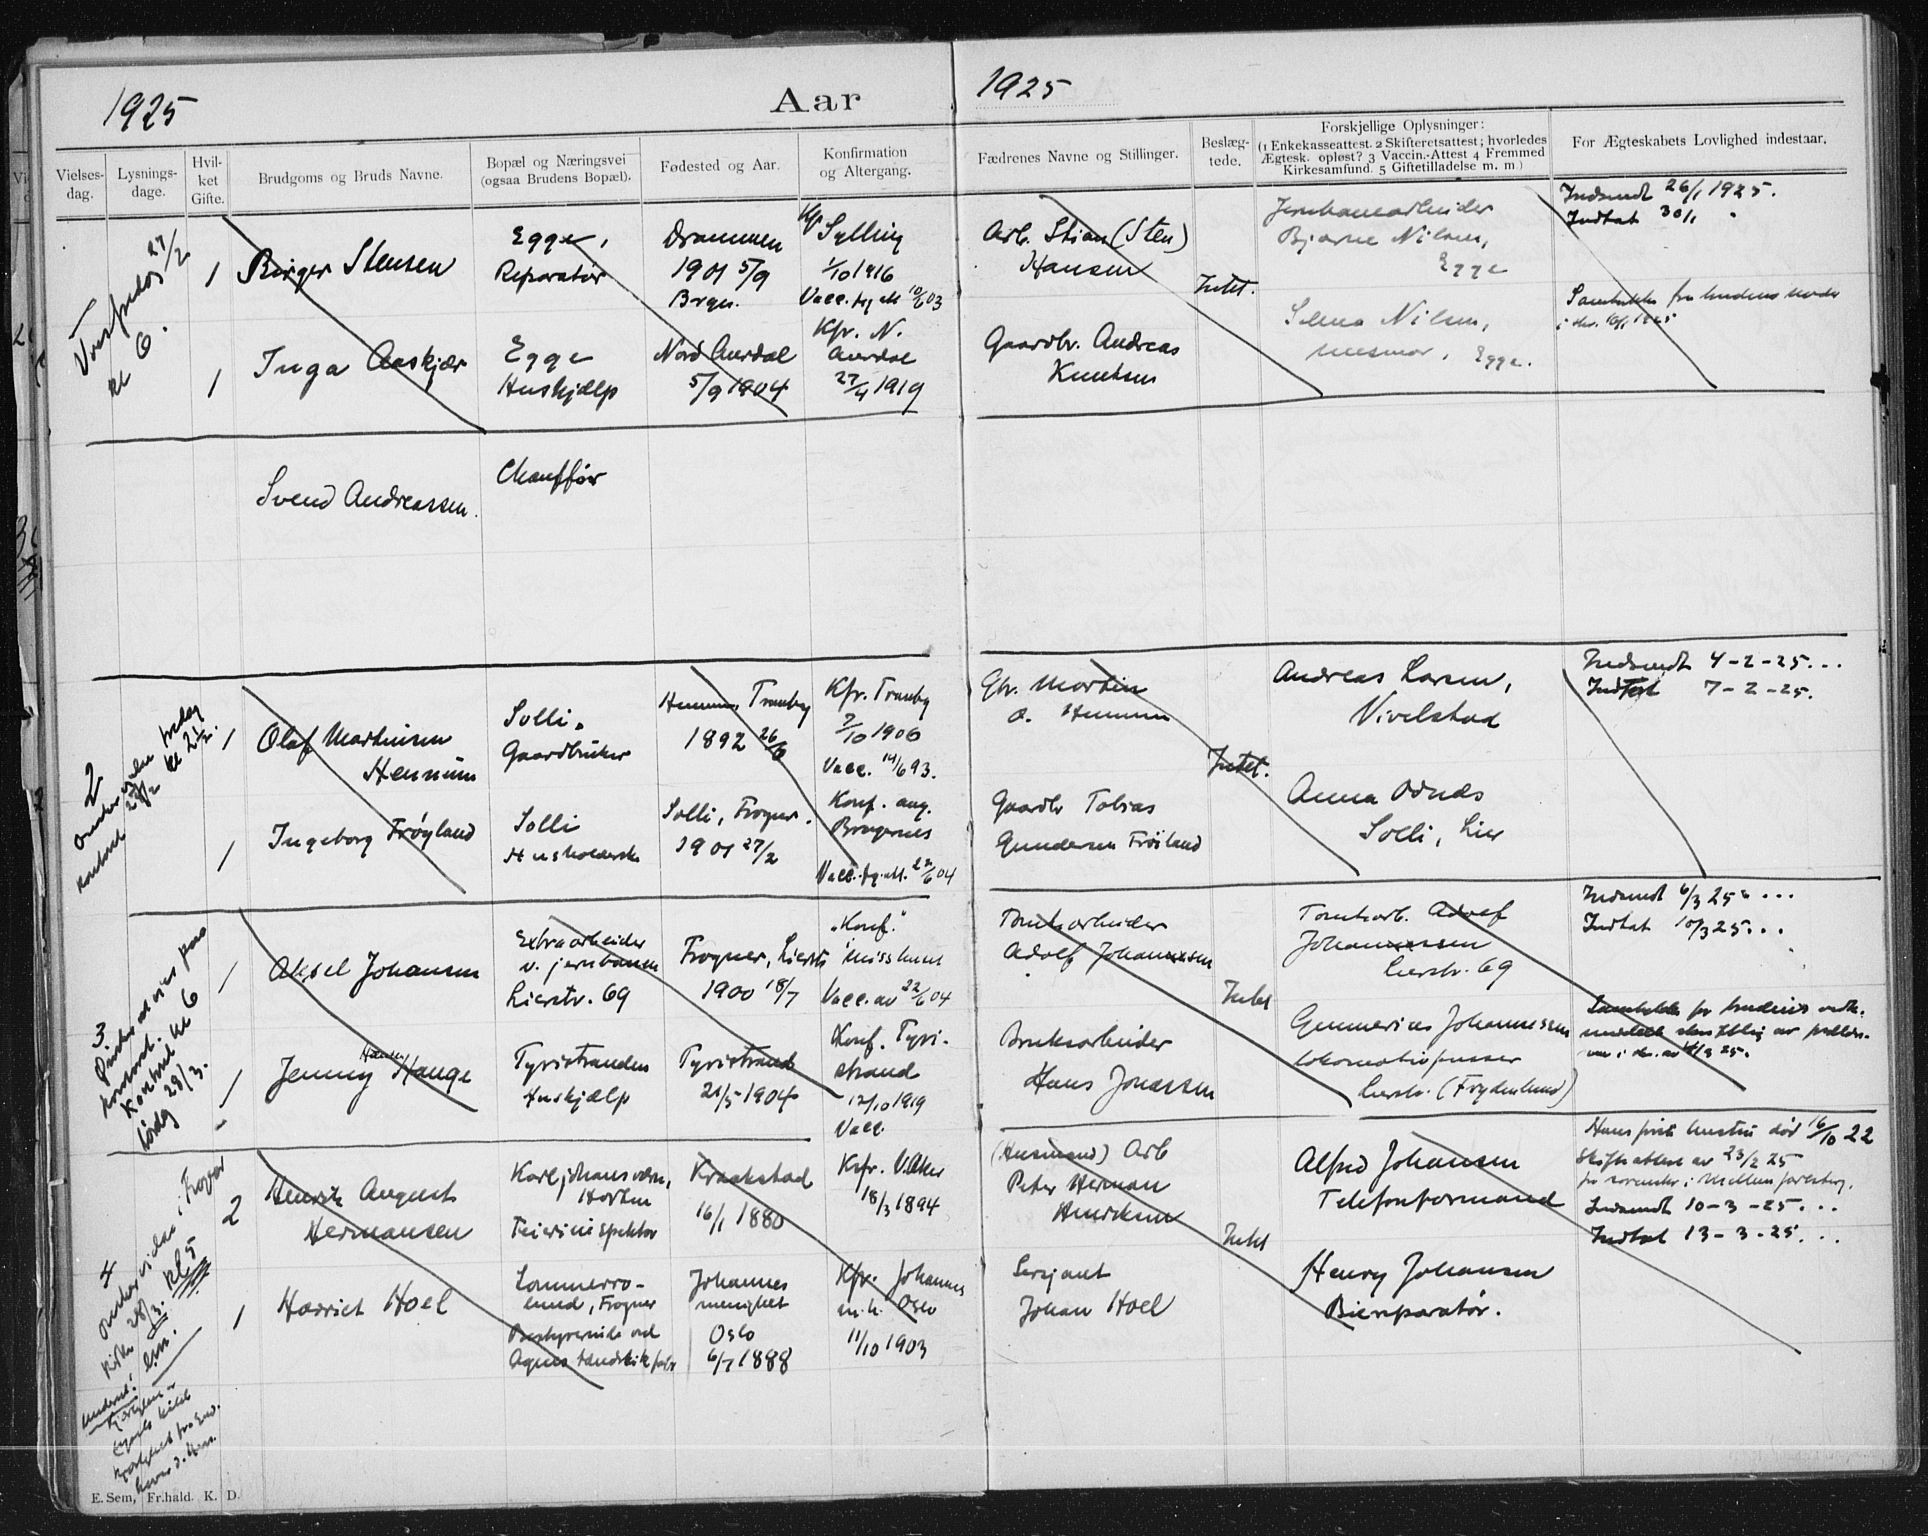 1925
Aar
1925
Vielses-
dag.
Lysnings-
dage.
Hvil-
ket
Gifte.
Brudgoms og Bruds Navne.
Bopæl og Næringsvei
(ogsaa Brudens Bopæl).
Fødested og Aar.
Konfirmation
og Altergang.
Fædrenes Navne og Stillinger.
Beslæg-
tede.
Forskjellige Oplysninger:
(1 Enkekasseattest. 2 Skifteretsattest; hvorledes
Ægtesk. opløst? 3 Vaccin.-Attest 4 Fremmed
Kirkesamfund. 5 Giftetilladelse m. m.)
For Ægteskabets Lovlighed indestaar.
27/2
kl 6.
1
Birger Stensen
Egge,
Reparatør
Drammen
1901 5/9
Brgn.
Kfr Sylling
1/10 1916
Vacc. 10/6 03
Arb. Stian (Sten)
Hansen
Intet.
Jernbanearbeider
Bjarne Nilsen,
Egge
Indsendt 26/1 1925.
Indtat 30/1 "
1
Inga Aaskjær
Egge
Hushjælp
Nord Aurdal
5/9 1904
Kfr. N.
Aurdal
27/4 1919
Gaardbr. Andreas
Knutsen
Selma Nilsen,
Egge.
Samtykke fra brudens
1925
Svend Andreassen.
Chauffør
2
kontoret 28/2 kl 2 1/2.
1
Olaf Martinsen
Hennum
Solli.
Gaardbruker
Hennum, Tranby
1892 26/6
Kfr. Tranby
7/10 1906
Vacc. 14/6 93.
Gbr. Martin
O. Hennum
Intet.
Andreas Larsen,
Vivelstad
Indsendt 4-2-25...
Indtat 7-2-25.
1
Ingeborg Frøyland
Solli
Husholderske
Solli, Frogner.
1901 27/2
Konf. aug.
Bragernes
Vacc. 22/6 04
Gaardbr Tobias
Gundersen Frøiland
Anna Odnæs
Solli, Lier
3.
Ønsker at vies paa
kontoret.
Kontoret kl 6
lørdag 28/3.
1
Aksel Johansen
Extraarbeider
v. jernbanen
Lierstr. 69
Frogner, Lierstr
1900 18/7
"Konf."
Vacc. av 22/6 04
Tomtearbeider
Adolf Johannessen
Intet
Tomtearb. Adolf
Johannessen
Lierstr. 69
Indsendt 6/3 25...
Indtat 10/3 25...
1
Jenny Hansen Hauge
Tyristranden
Huskjælp
Tyristrand
21/5 1904
Konf. Tyri-
strand
12/10 1919
Vacc.
Bruksarbeider
Hans Jonassen
Gunnerius Johannessen
lokomotivpusser
Lierstr. (Frydenlund)
Samtykke fra brudens
4
Ønsker vielse i Frogner
Kirke 28/3. kl 5
em.
2
Henrik August
Hermansen
Karljohansvern,
Horten
Feierinspektør
Kraakstad
16/1 1880
Kfr. V.Aker
18/3 1894
(Husmand) Arb
Peter Herman
Henriksen
Intet
Alfred Johansen
Telefonformand
Hans første hustru død 16/10 22
Skifteattest av 23/2 25
fra sorenskr. i Mellem Jarlsberg.
Indsendt 10-3-25...
Indtat 13-3-25...
1
Harriet Hoel
Lommerro-
lund, Frogner
Bestyrerinde ved
Agnes
Johannes
menighet
Oslo
6/7 1888
Kfr. Johannes
m.h. Oslo
11/10 1903
Serjant
Johan Hoel
Henry Johansen
Bilreparatør.
E. Sem, Fr.hald. K. D.